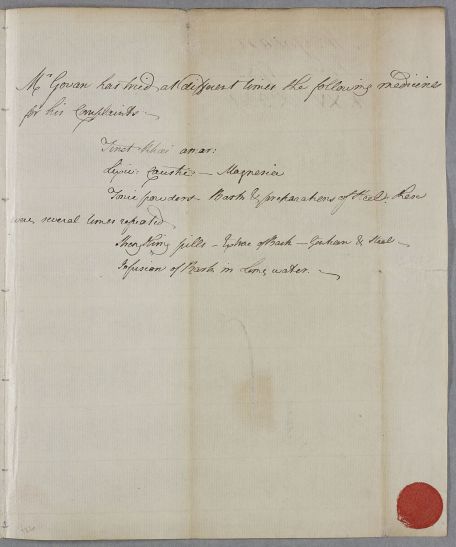 Mr Govan has tried at different times the following medicines
for his Complaints
Tinct Rhei amar:
Lixiv: Caustic — Magnesia
Tonic powders - Bark & preparations of Steel, these
were several times repeated
Strengthning pills - Extract of Bark - Gentian & Steel
Infusion of Bark in Lime water.